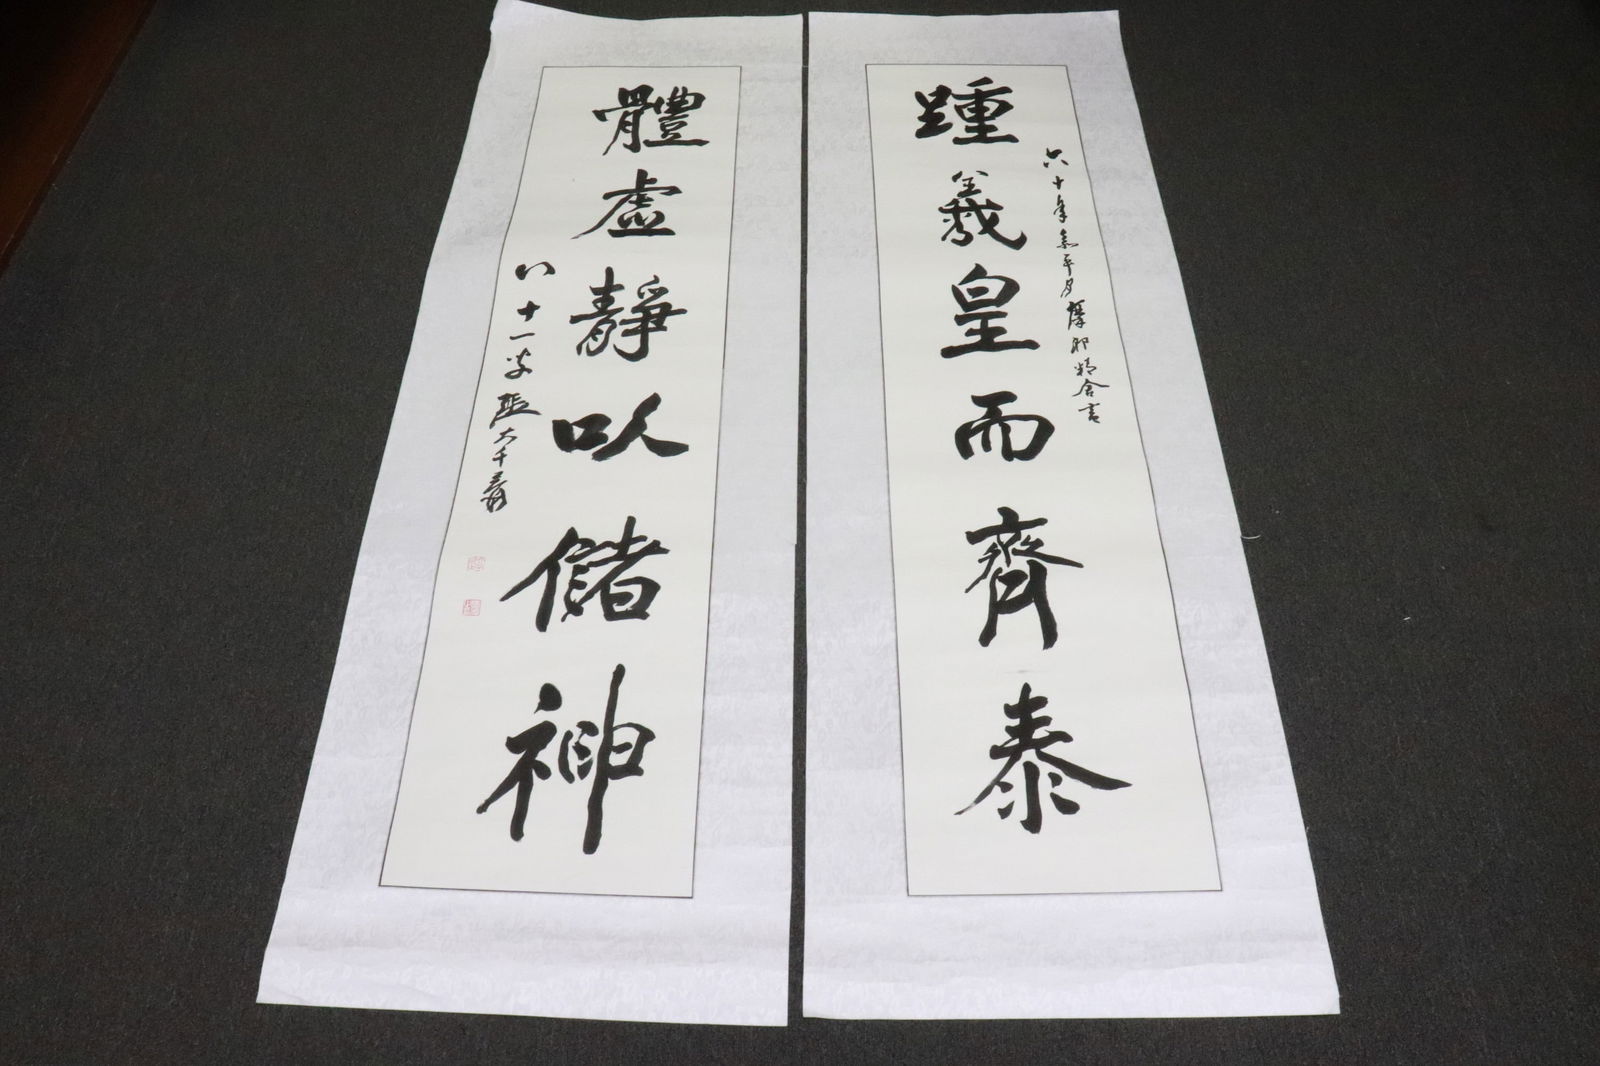 踵羲皇而齊泰
六十年嘉平月摩耶精舍書
體虛靜以儲神
八十一叟張大千爰